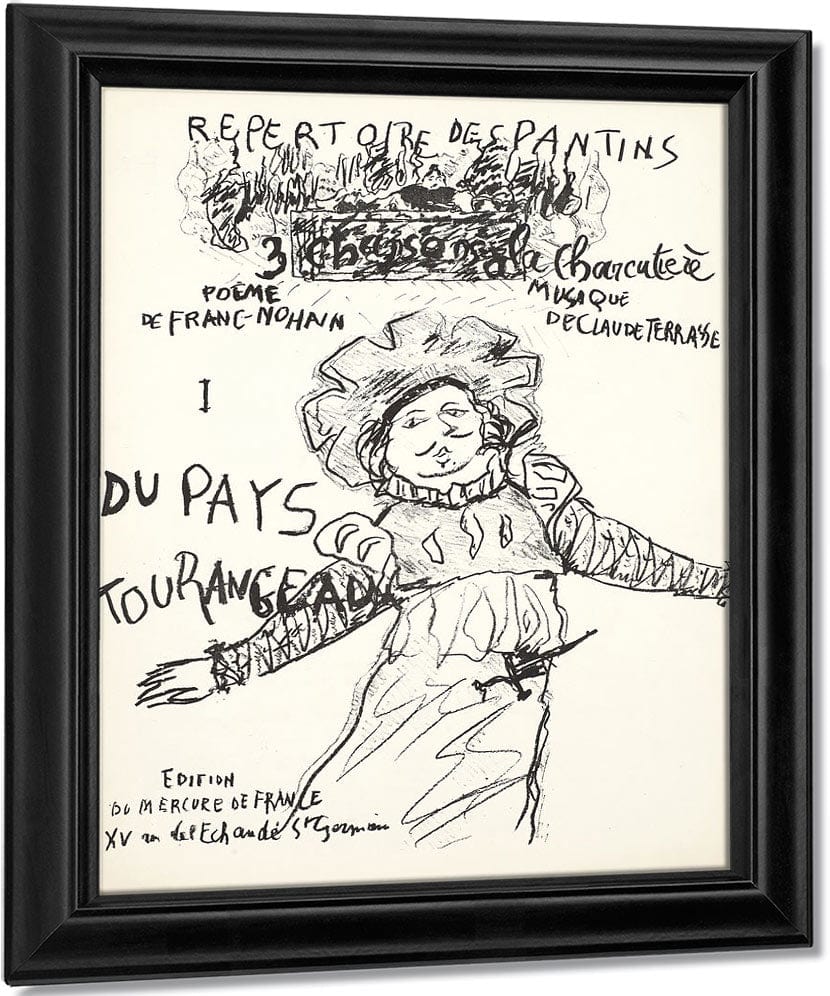 REPERTOIRE DES PANTINS
3 chansons à la charcutière
POÈME
DE FRANC-NOHAIN
MUSIQUE
DE CLAUDE TERRASSE
I
DU PAYS
TOURANGEAU
EDITION
DU MERCURE DE FRANCE
XV rue de l'Echaudé St Germain